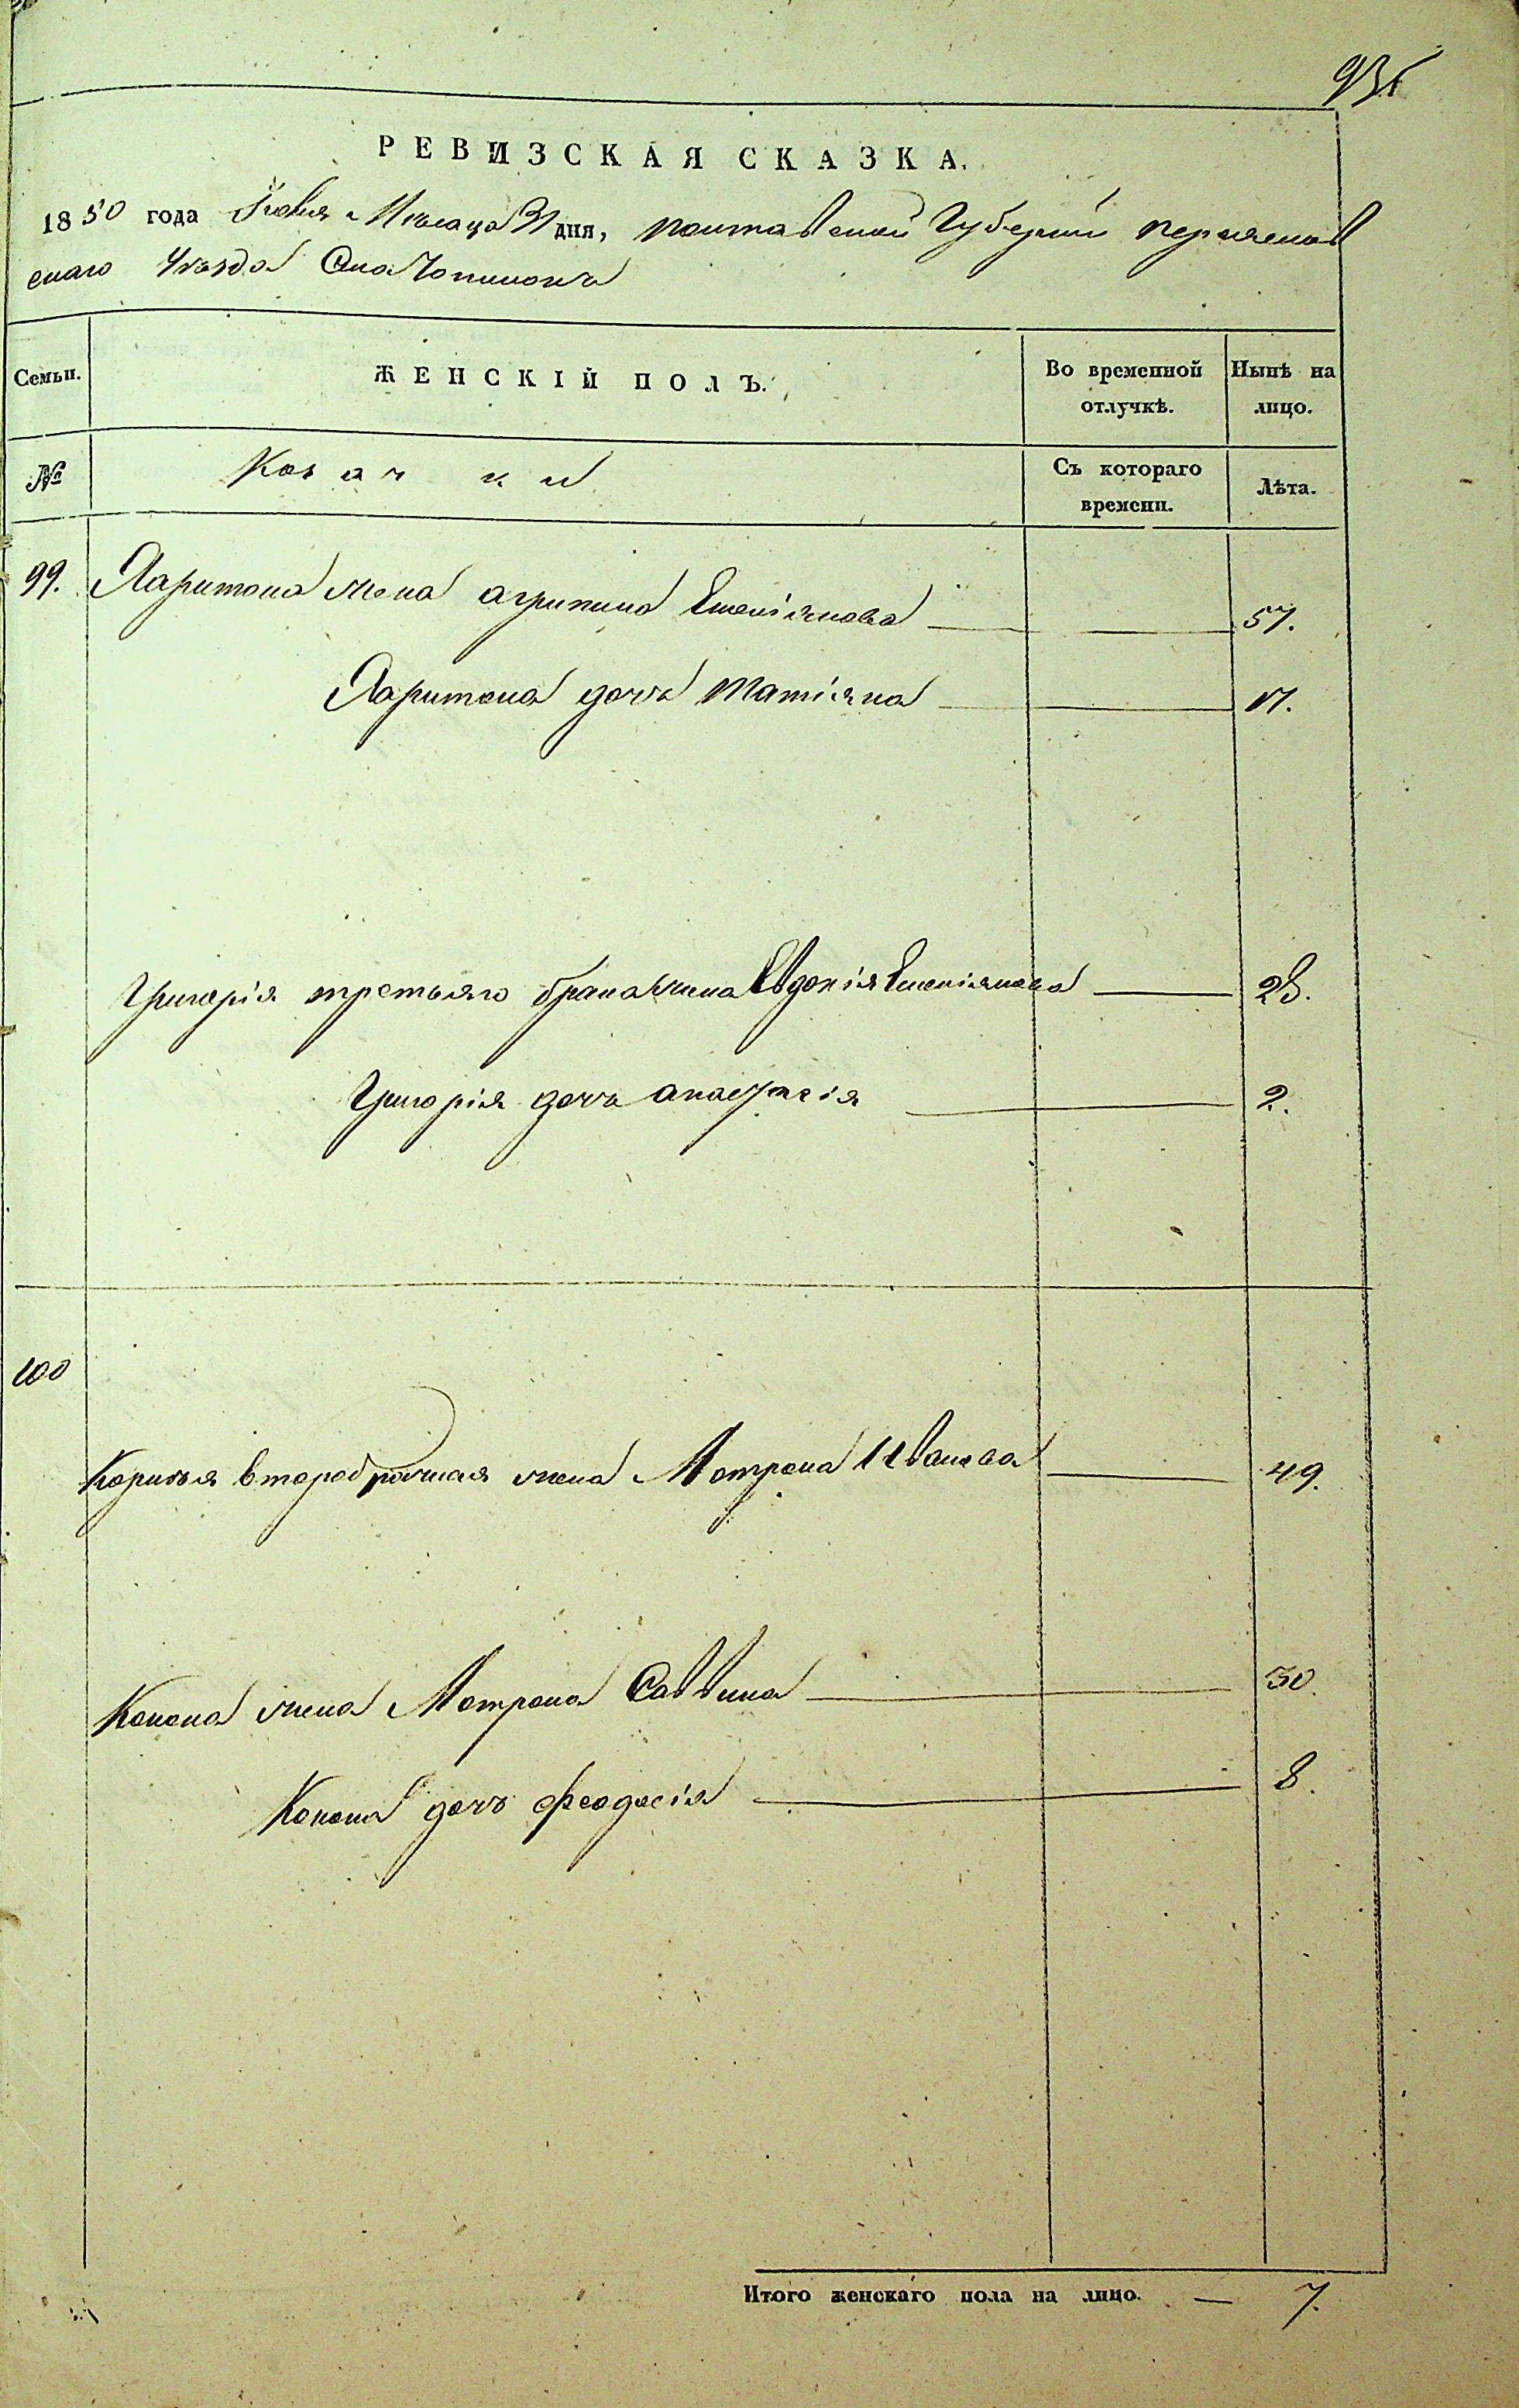 РЕВИЗСКАЯ СКАЗКА.
1850 года Июня Мѣсяца дня, Полтавской Губерніи Переяслав
скаго Уѣзда Села
Семьи. ЖЕНСКІЙ ПОЛЪ. Во временной отлучкѣ. Нынѣ на лицо.
№ Козачки Съ котораго времени. Лѣта.
99. Харитона жена Агрипина Емеліянова 57.
Харитона дочь Татіяна 17.
Григорія третьяго брака жена Евдокія Емеліянова 28.
Григорія дочь Анастасія 2.
100
второбрачная жена Мотрона Иванова 49.
Конона жена Мотрона Саввина 30.
Конона дочь Феодосія 8.
Итого женскаго пола на лицо. — 7.